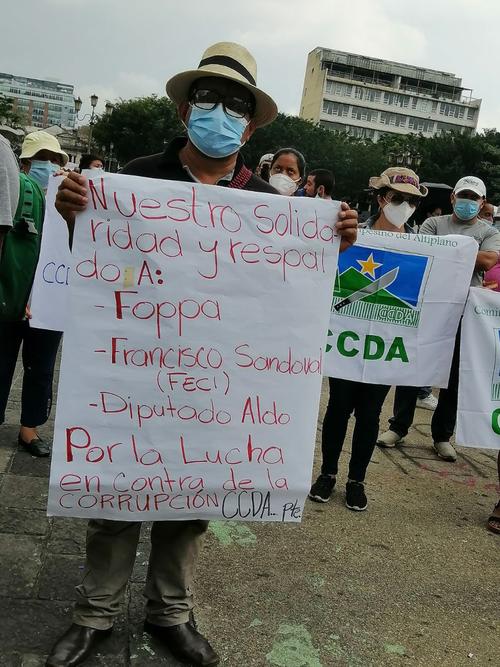 Nuestro solida
ridad y respal
do A:
- Foppa
- Francisco Sandoval
(FECI)
- Diputado Aldo
Por la Lucha
en contra de la
CORRUPCIÓN CCDA.. pte.
CCI
pesino del Altiplano
CCDA
CCDA
Comit